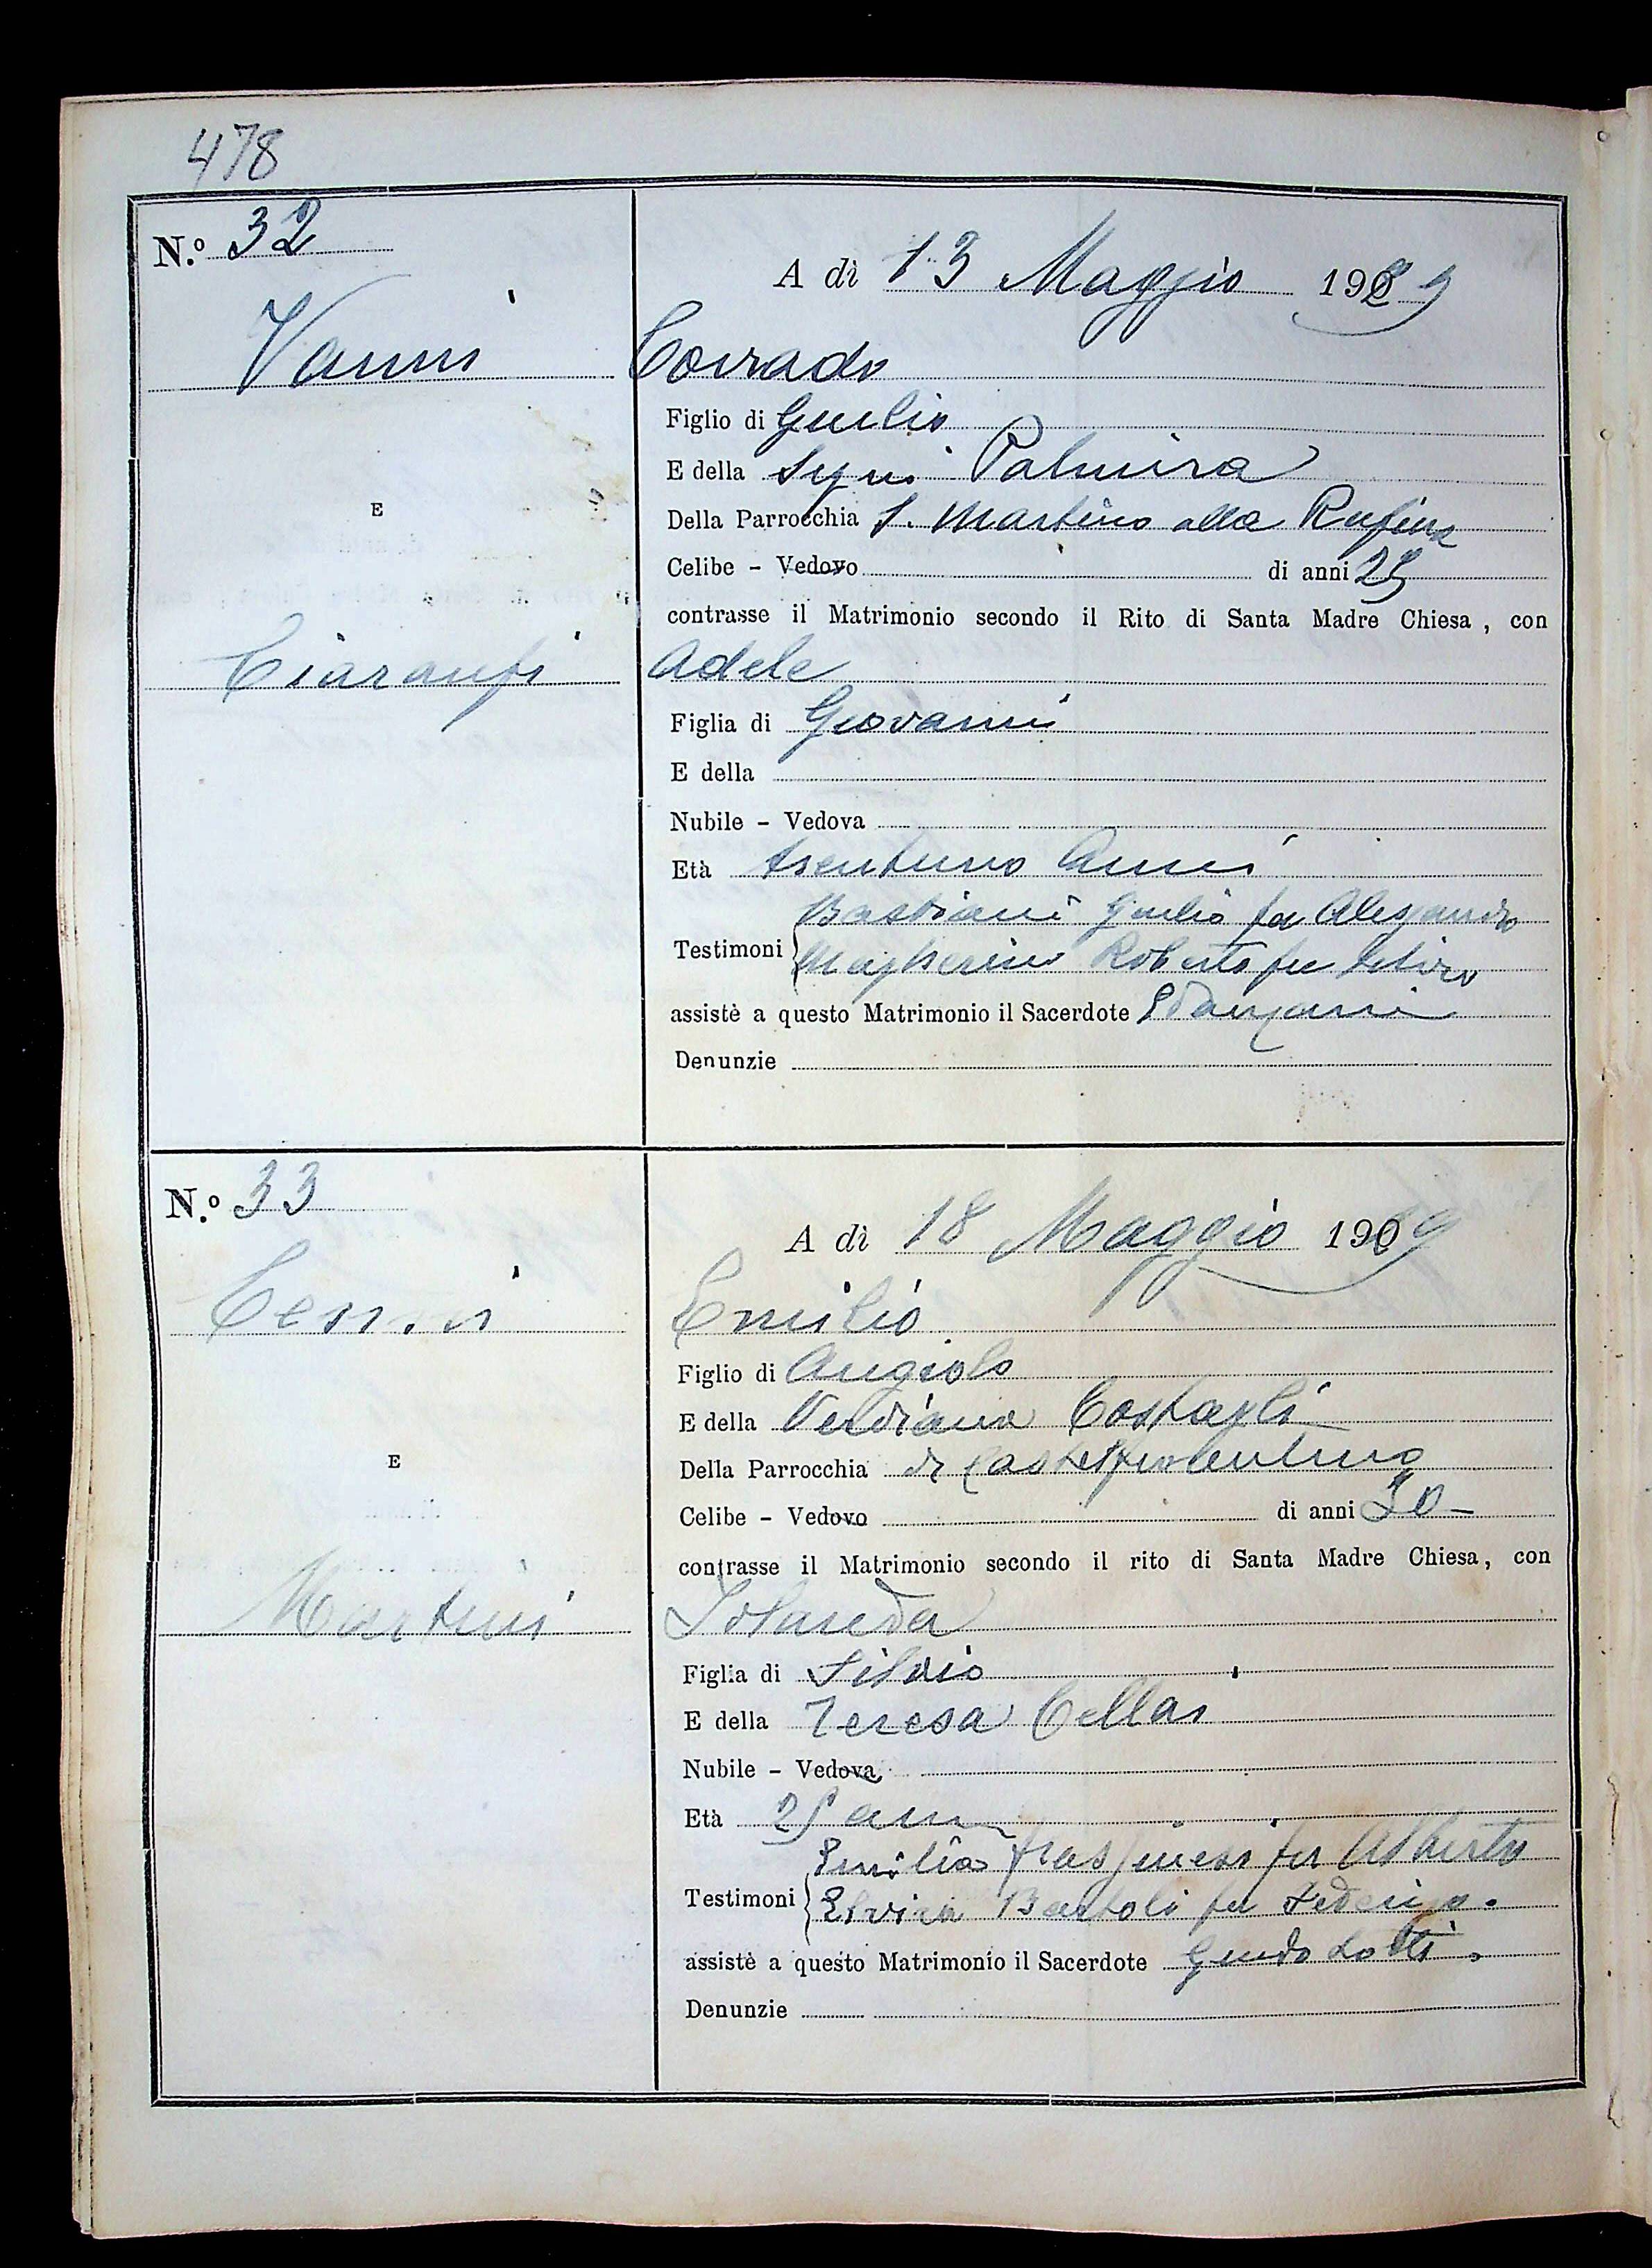 478
N.º 32
A dì 13 Maggio 1929
Vanni Corrado
Figlio di Giulio
E della Palmira
E
Della Parrocchia S. Martino alla Rufina
Celibe - Vedovo di anni 25
contrasse il Matrimonio secondo il Rito di Santa Madre Chiesa, con
Ciaranfi Adele
Figlia di Giovanni
E della
Nubile - Vedova
Età trentuno Anni
Bastiani Giulio fu Alessandro
Testimoni Magherini Roberto fu
assistè a questo Matrimonio il Sacerdote
Denunzie
N.º 33
A dì 18 Maggio 1909
Emilio
Figlio di Angiolo
E della Verdiana Costagli
E
Della Parrocchia di Castelfiorentino
Celibe - Vedovo di anni 30
contrasse il Matrimonio secondo il rito di Santa Madre Chiesa, con
Martini Iolanda
Figlia di Silvio
E della Teresa Cellai
Nubile - Vedova
Età anni
Emilia fu Alberto
Testimoni Elvira Bartoli fu Federigo.
assistè a questo Matrimonio il Sacerdote Guido Lotti.
Denunzie